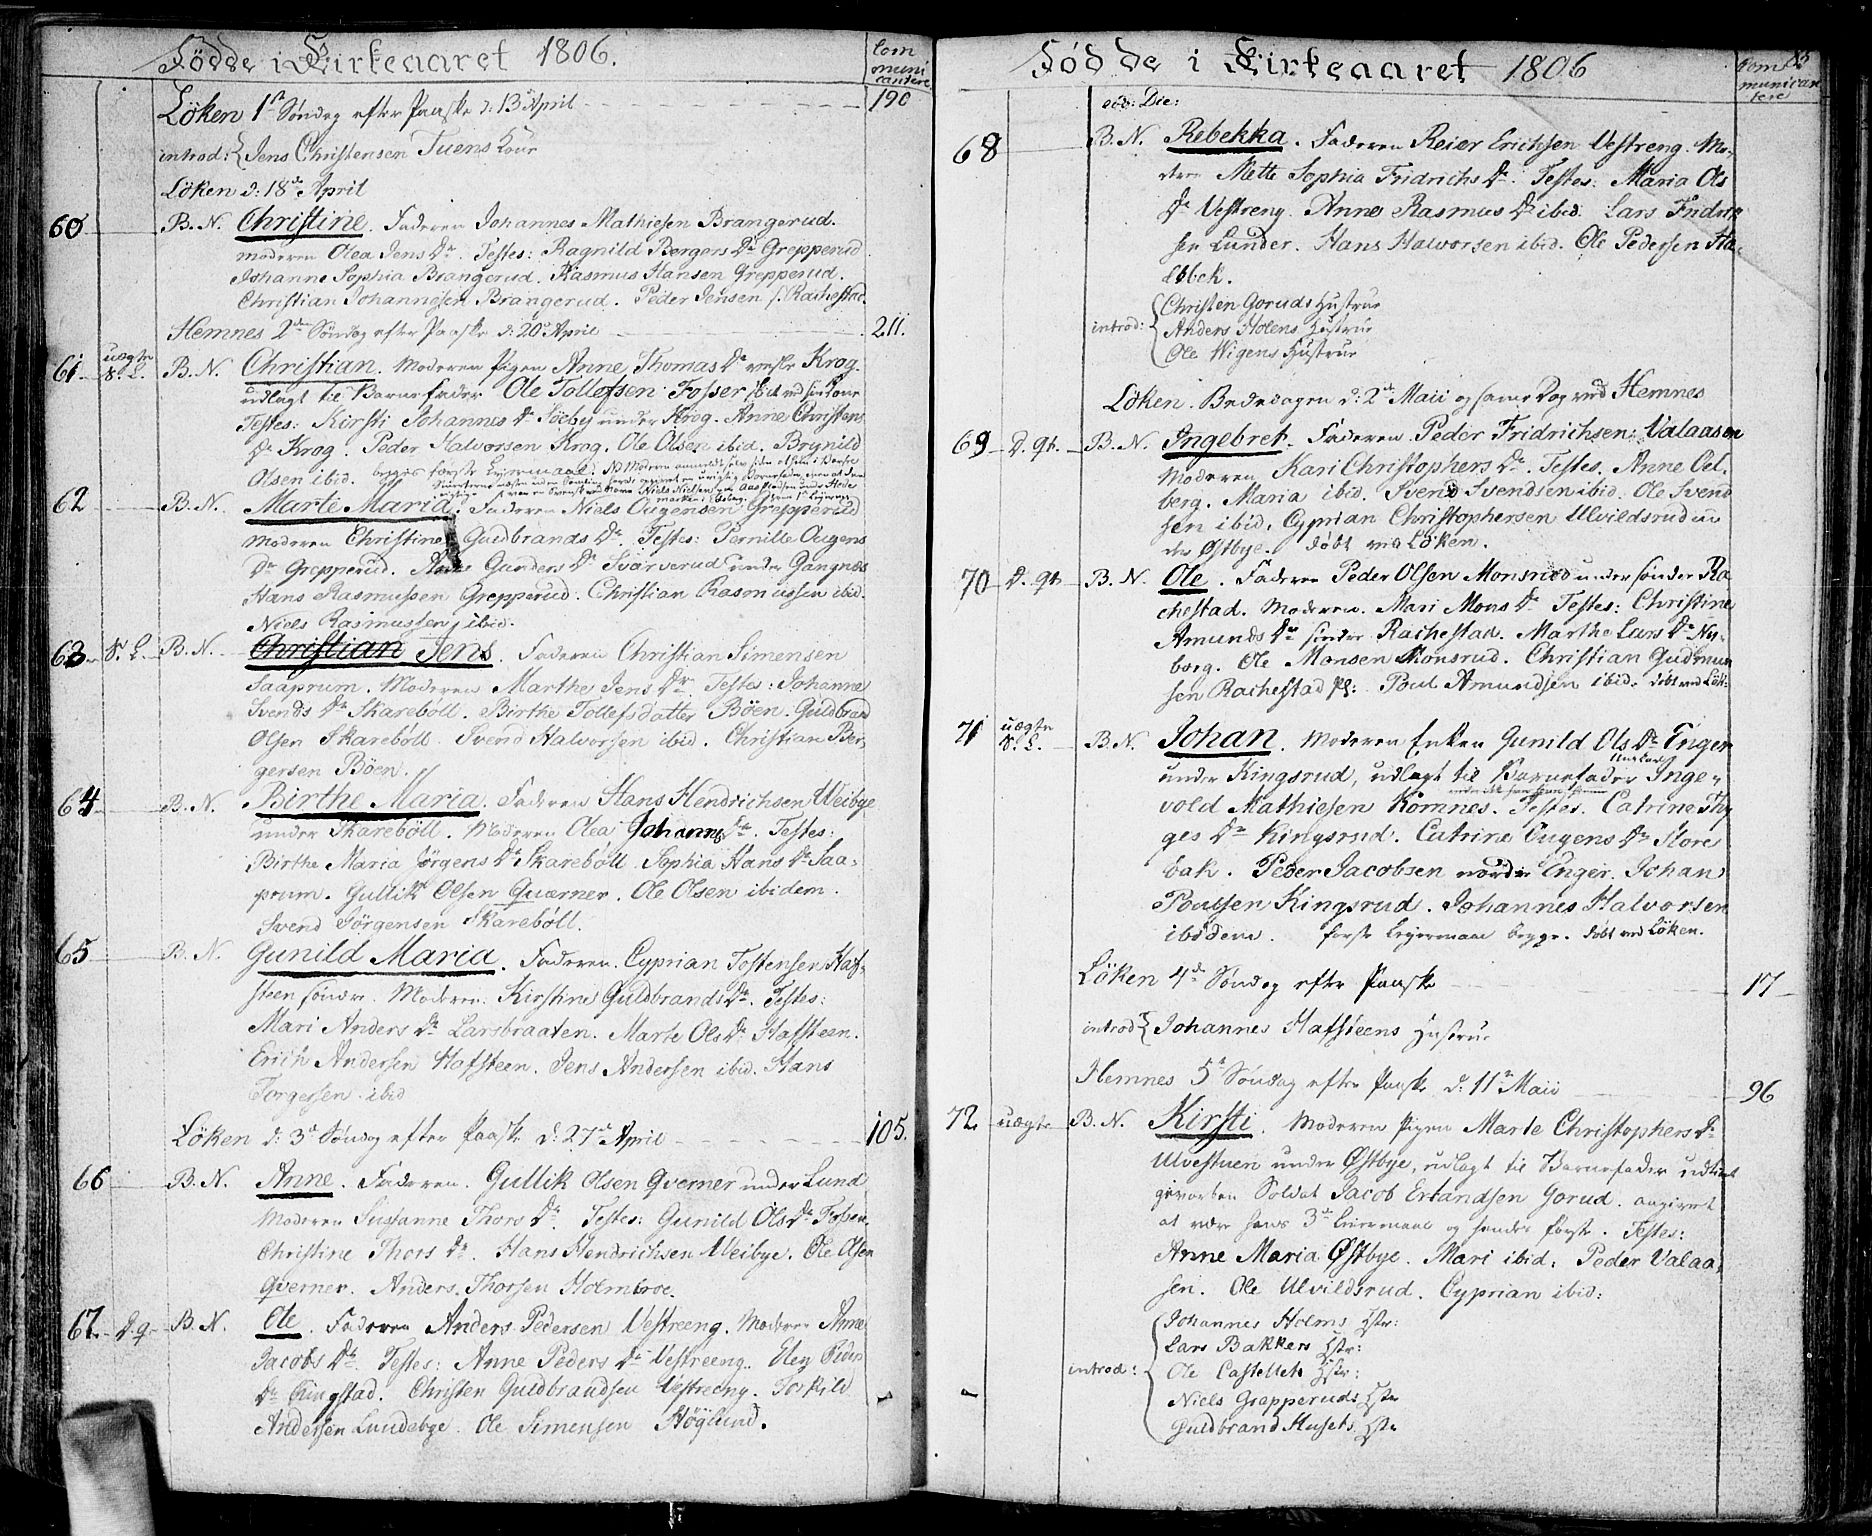 Födde i Kirkeaaret 1806.
Com
muni
cantere
Löken 1ste Söndag efter Paaske d: 13 April 190
introd: Jens Christensen Tuens Kone
Löken d: 18de April
60 B. N. Christine. Faderen Johannes Mathiesen Brangerud.
moderen Olea Jens Dr. Testes: Ragnild Börgers Dr Grepperud
Johanne Sophia Brangerud. Rasmus Hansen Grepperud.
Christian Johannesen Brangerud. Peder Jensen s. Rachestad.
Hemnes 2den Söndag efter Paaske d: 20de April 211.
61 uægte S. L. B. N. Christian. Moderen Pigen Anne Thomas Dr Krog.
udlagt til Barnefader Ole Tollefsen Fosser
Testes: Kirsti Johannes Dr Söeby under Krog. Anne Christens
Dr Krog. Peder Halvorsen Krog. Ole Olsen ibid. Brynild
Olsen ibid. begges förste Leiermaal.
62 B. N. Marte Maria. Faderen Niels Ougensen Grepperud
Moderen Christine Guldbrands Dr. Testes: Pernille Ougens
Dr Grepperud. Anne Gunders Dr Svarverud under Gangnæs
Hans Rasmussen Grepperud. Christian Rasmussen ibid.
Niels Rasmussen ibid.
63 S. L. B. N. Christian Jens. Faderen Christian Simensen
Saaprum. Moderen Marthe Jens Dr. Testes: Johanne
Svends Dr Skareböll. Birthe Tollefsdatter Böen. Guldbrand
Olsen Skareböll. Svend Halvorsen ibid. Christian Ber-
gersen Böen.
64 B. N. Birthe Maria. Faderen Hans Hendrichsen Weibye
under Skareböll. Moderen Olea Johannes Dr. Testes:
Birthe Maria Jörgens Dr Skareböll. Sophia Hans Dr Saa-
prum. Gullik Olsen Quærner. Ole Olsen ibidem.
Svend Jörgensen Skareböll.
65 B. N. Gunild Maria. Faderen. Cyprian Tostensen Haf-
steen söndre. Moderen. Kirstine Guldbrands Dr. Testes:
Mari Anders Dr Larsbraaten. Marte Ols Dr Hafsteen.
Erich Andersen Hafsteen. Jens Andersen ibid. Hans
Torgersen ibid
Löken d: 3die Söndag efter Paaske d: 27de April 105.
66 B. N. Anne. Faderen. Gullik Olsen Qverner under Lund
Moderen Susanne Thors Dr. Testes: Gunild Ols Dr Fosser.
Christine Thors Dr. Hans Hendrichsen Weibye. Ole Olsen
Qverner. Anders Thorsen Holmbroe.
67. D. q. B. N. Ole. Faderen Anders Pedersen Vestreeng. Moderen Anne
Jacobs Dr. Testes: Anne Peders Dr Vestreeng. Eley Peder
Dr Ringstad. Christen Guldbrandsen Vestreeng. Torkild
Andersen Lundebye. Ole Simensen Höglund.
Födde i Kirkeaaret 1806
85
Com
municantere
eod: Die:
68 B. N. Rebekka. Faderen Reier Erichsen Vestreng. Mo-
deren Mette Sophia Fridrichs Dr. Testes: Maria Ols
Dr Vestreng. Anne Rasmus Dr ibid. Lars Fridrik
sen Lunder. Hans Halvorsen ibid. Ole Pedersen Ha-
ebbek.
introd: Christen Goruds Hustrue
Anders Holens Hustrue
Ole Wigens Hustrue
Löken. Bededagen d: 2den Maii og samme Dag ved Hemnes
69 D. qt. B. N. Ingebret. Faderen Peder Fridrichsen: Valaasen
Moderen Kari Christophers Dr. Testes. Anne Oel-
berg. Maria ibid. Svend Svendsen ibid. Ole Svend
sen ibid. Cyprian Christophersen Ulvildsrud un
der Östbye. döbt ved Löken.
70 D. qt. B. N. Ole. Faderen Peder Olsen Monsrud under sönder Ra
chestad. Moderen. Mari Mons Dr Testes: Christine
Amunds Dr sönder Rachestad. Marthe Lars Dr Ny-
borg. Ole Monsen Monsrud. Christian Gudmun
sen Rachestad Poul Amundsen ibid. döbt ved Lök:
71 uægte S. L. B. N. Johan. Moderen Enken Gunild Ols Dr Enger
under Kingsrud, udlagt til Barnefader Ungkarl Inge-
vold Mathiesen Komnes. Testes. Catrine Thy
ges Dr Kingsrud. Catrine Ougens Dr Store
bak. Peder Jacobsen nordre Enger. Johan
Poulsen Kingsrud. Johannes Halvorsen
ibidem. förste Leiermaal begge. döbt ved Löken.
Löken 4de Söndag efter Paaske 17
introd: Johannes Hafsteens Hustrue
Hemnes 5te Söndag efter Paaske d: 11te Maii 96
72. uægte B. N. Kirsti. Moderen Pigen Marte Christophers Dr
Ulvestuen under Östbye, udlagt til Barnefader udtient
geworben Soldat Jacob Erlandsen Gorud. angivet
at være hans 3de Leiermaal og hendes förste. Testes:
Anne Maria Östbye. Mari ibid: Peder Valaa-
sen. Ole Ulvildsrud. Cyprian ibid:
introd: Johannes Holms Hstr:
Lars Bakkers Hstr:
Ole Castellets Hstr:
Niels Grepperuds Hstr
Guldbrand Husets Hstr